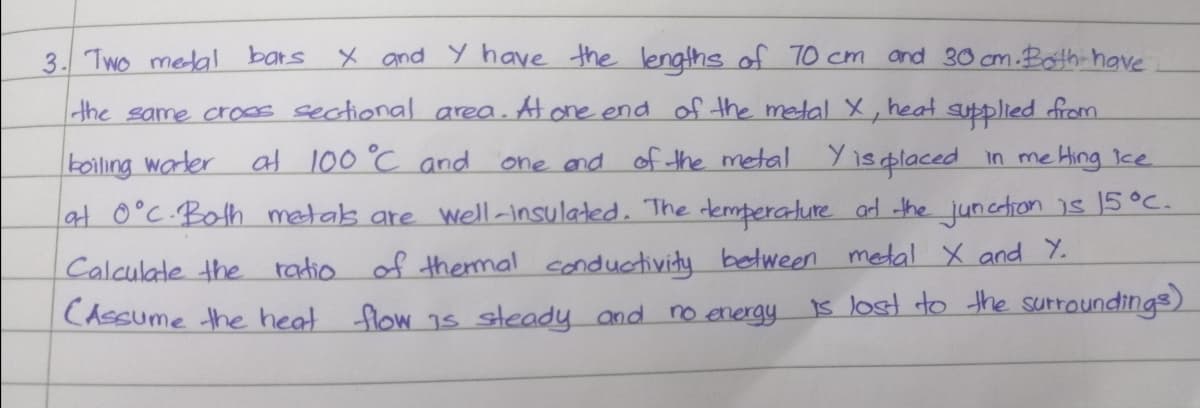 3. Two metal bars X and Y have the lengths of 70 cm and 30 cm. Both have
the same cross sectional area. At one end of the metal X, heat supplied from
boiling water at 100 °C and one end of the metal Y is placed in melting ice
at 0°C. Both metals are well-insulated. The temperature at the junction is 15°C.
Calculate the ratio of thermal conductivity between metal X and Y.
(Assume the heat flow is steady and no energy is lost to the surroundings)